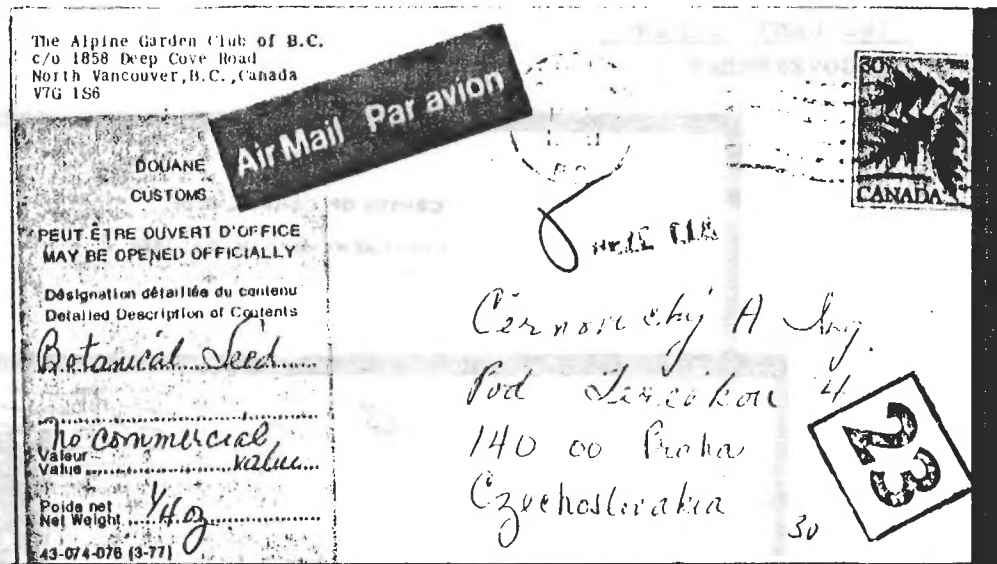 The Alpine Garden Club of B.C.
c/o 1858 Deep Cove Road
North Vancouver,B.C.,Canada
V7G 1S6
Air Mail Par avion
DOUANE
CUSTOMS
PEUT ÊTRE OUVERT D'OFFICE
MAY BE OPENED OFFICIALLY
Désignation détaillée du contenu
Detailed Description of Contents
Botanical Seed
no commercial
Valeur
Value value
Poids net
Net Weight 1/4 oz
43-074-076 (3-77)
30
CANADA
A Ing.
Pod 4
140 00 Praha
Czechoslovakia
23
30